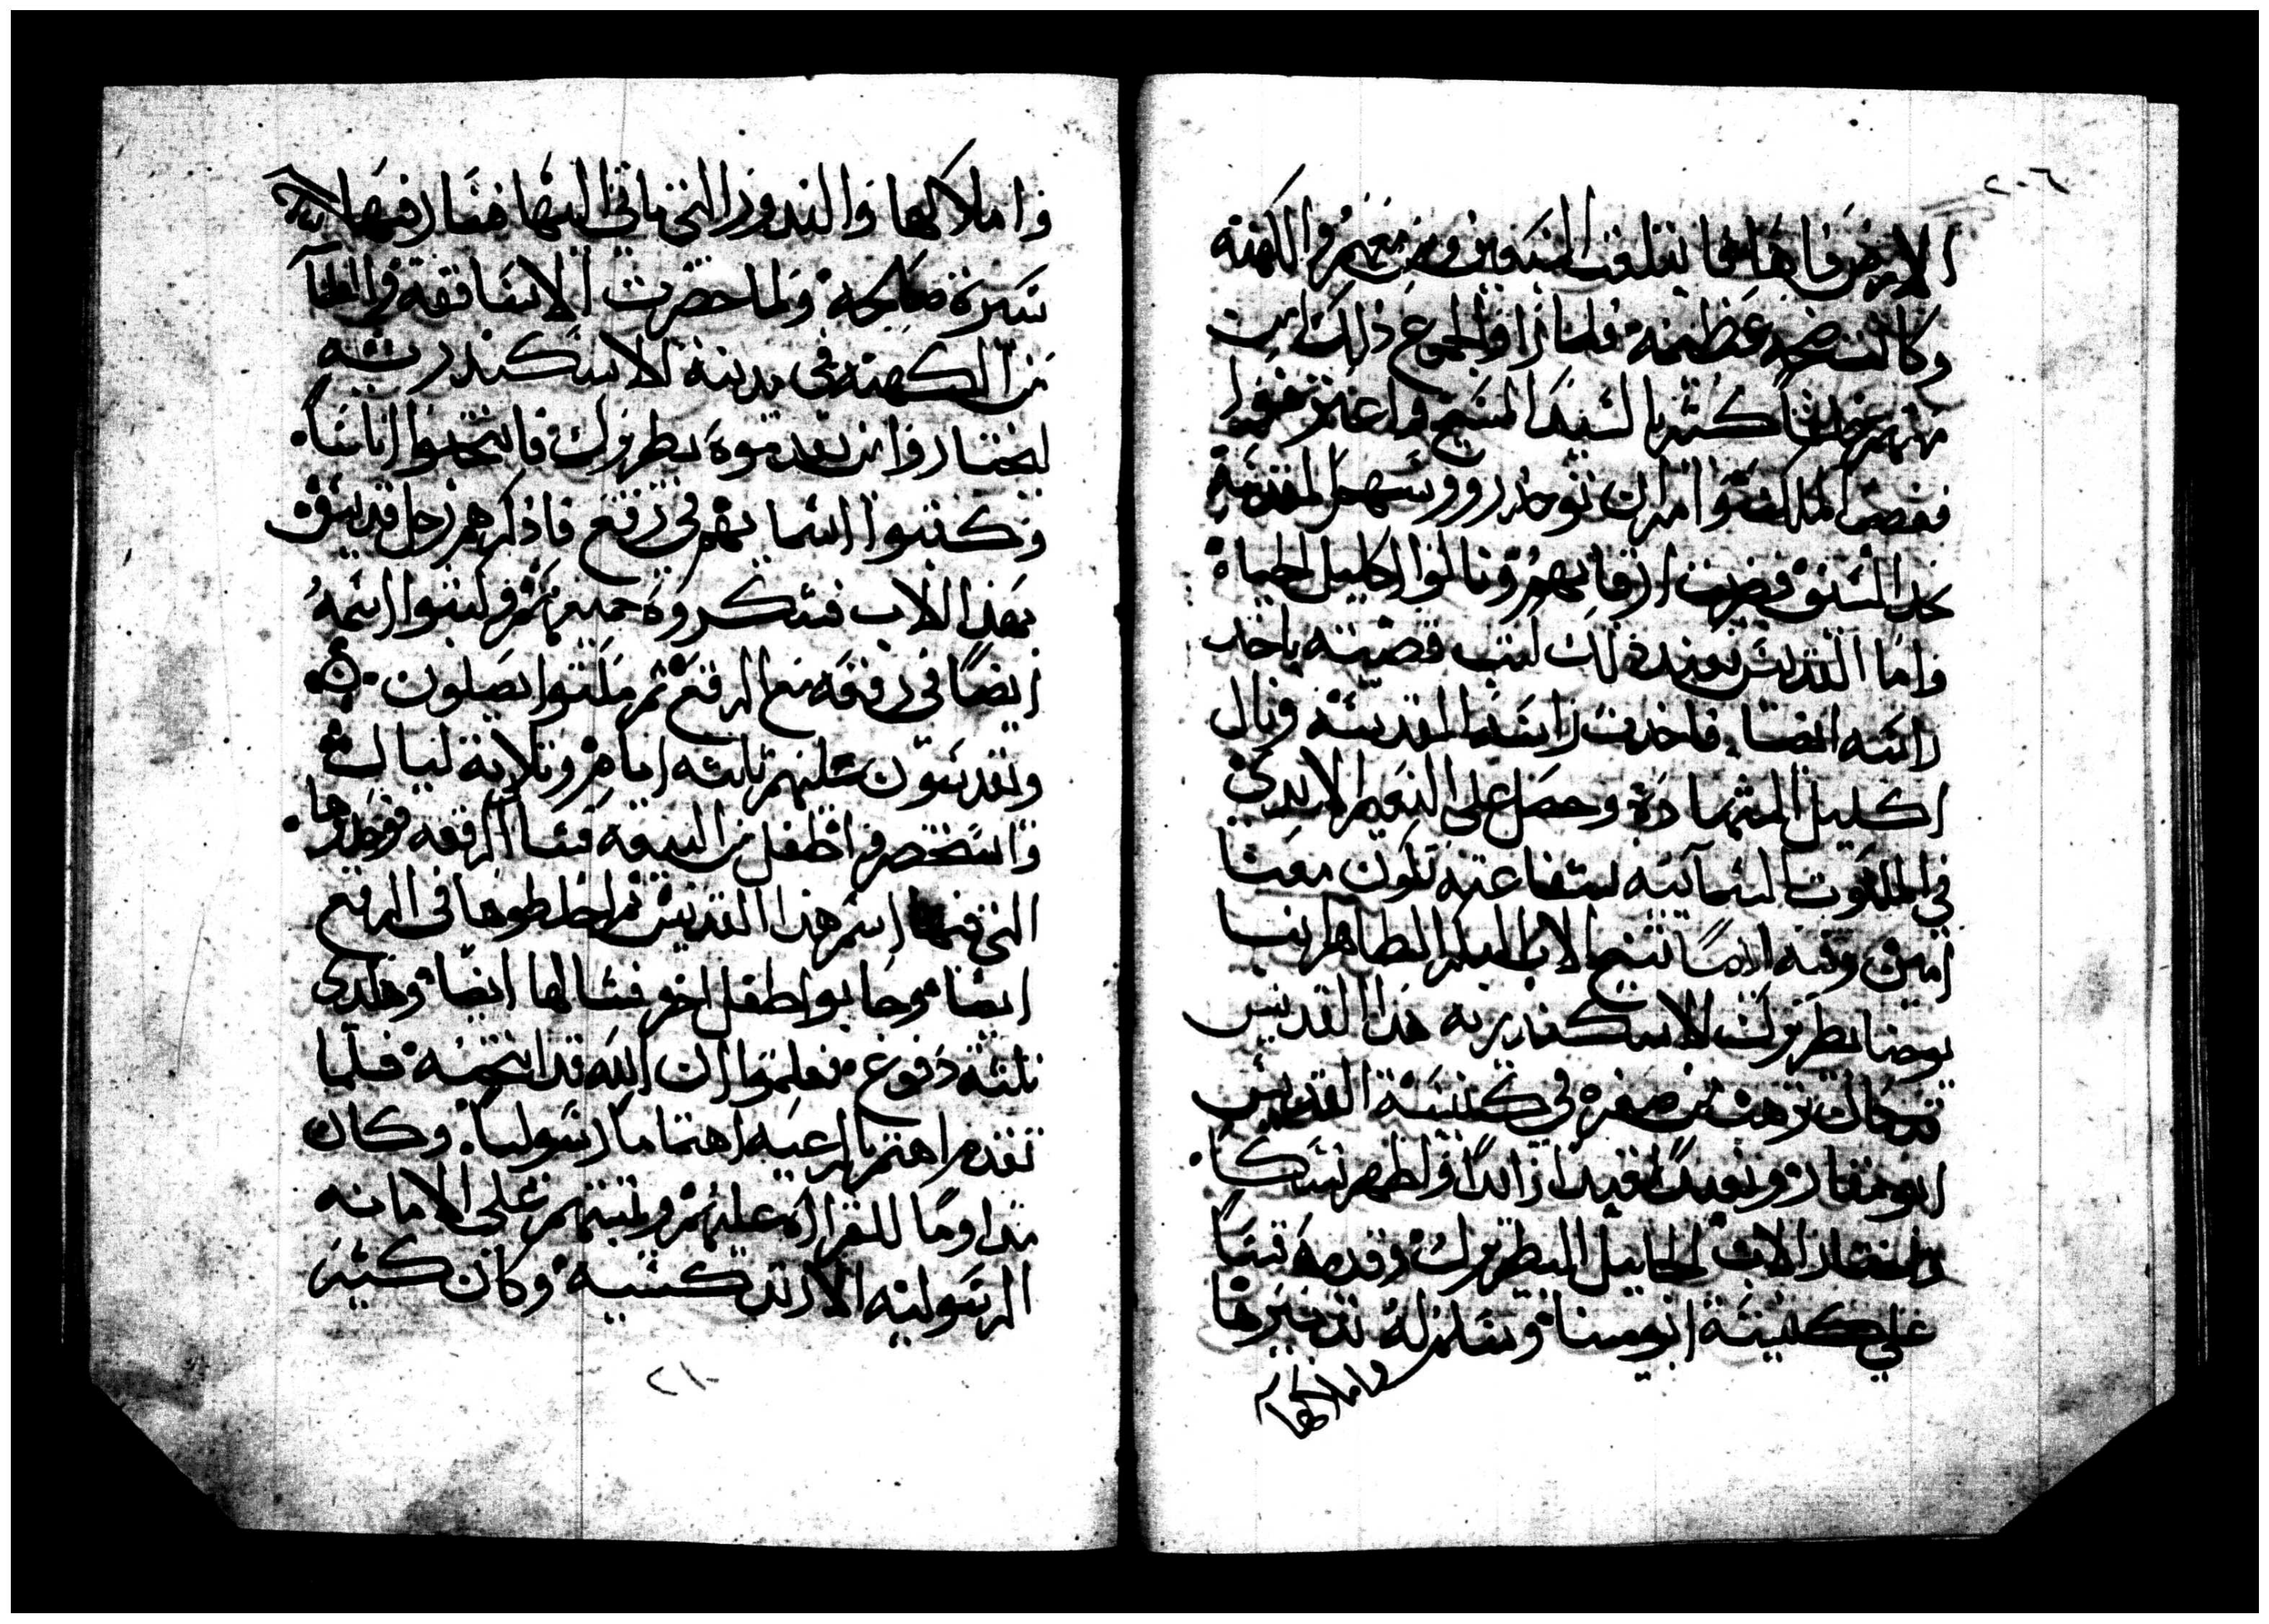 ٢٠٦
الارض فاها فابتلعت المنبرين ومن معهم والكهنه
وكانت ضجه عظيمة فلما راوا الجموع ذلك امنت
منهم كثير بالسيد المسيح واعترفوا
فغضب الملك وامر ان توخد رووسهم المقدسة
بحد السيف فضربت ارقابهم ونالوا اكليل الحياة
واما القديس فبعد ذلك كتب قضيته باخد
راسه ايضا فاخدت راسه المقدسة ونال
اكليل الشهادة وحصل على النعيم الابدي
في الملكوت السمائيه شفاعته تكون معنا
امين وفيه ايضا تنيح الاب الطاهر انبا
يوحنا بطريرك الاسكندريه هذا القديس
قد كان ترهب من صغره في كنيسة القديس
ابو مقار وتعبد تعبدا زائدا واظهر نسكا
واختاره الاب البطريرك وقدمه قسا
علي كنيسة ابو مينا وسلم له تدبيرها
واملاكها
واملاكها والندور التي تاتي اليها فسار فيها
سيرة صالحه ولما حضرت الاساقفه
من الكهنه في مدينة الاسكندريه
ليختاروا من يقدموه بطريرك فانتخبوا اناسا
وكتبوا اسمايهم في رقع فاذكرهم رجل قديس
بهذا الاب فشكروه جميعهم وكتبوا اسمه
ايضا في رقعه مع الرقع ثم مكتوا يصلون
ويقدسون عليهم ثلثه ايام وثلاثة ليال
واستحضروا طفل من البيعه فشال الرقعه فوجدوها
التي فيها اسم هذا القديس ثم اخلطوها في الرقع
ايضا وجابوا طفل اخر فشالها ايضا وهكدي
ثلثة دفوع فعلموا ان الله قد انتخبه فلما
تقدم اهتم بالرعيه اهتماما رسوليا وكان
مداوما للقراه عليهم وثبتهم على الامانه
الرسوليه الارتدكسيه وكان كثير
٢١٠